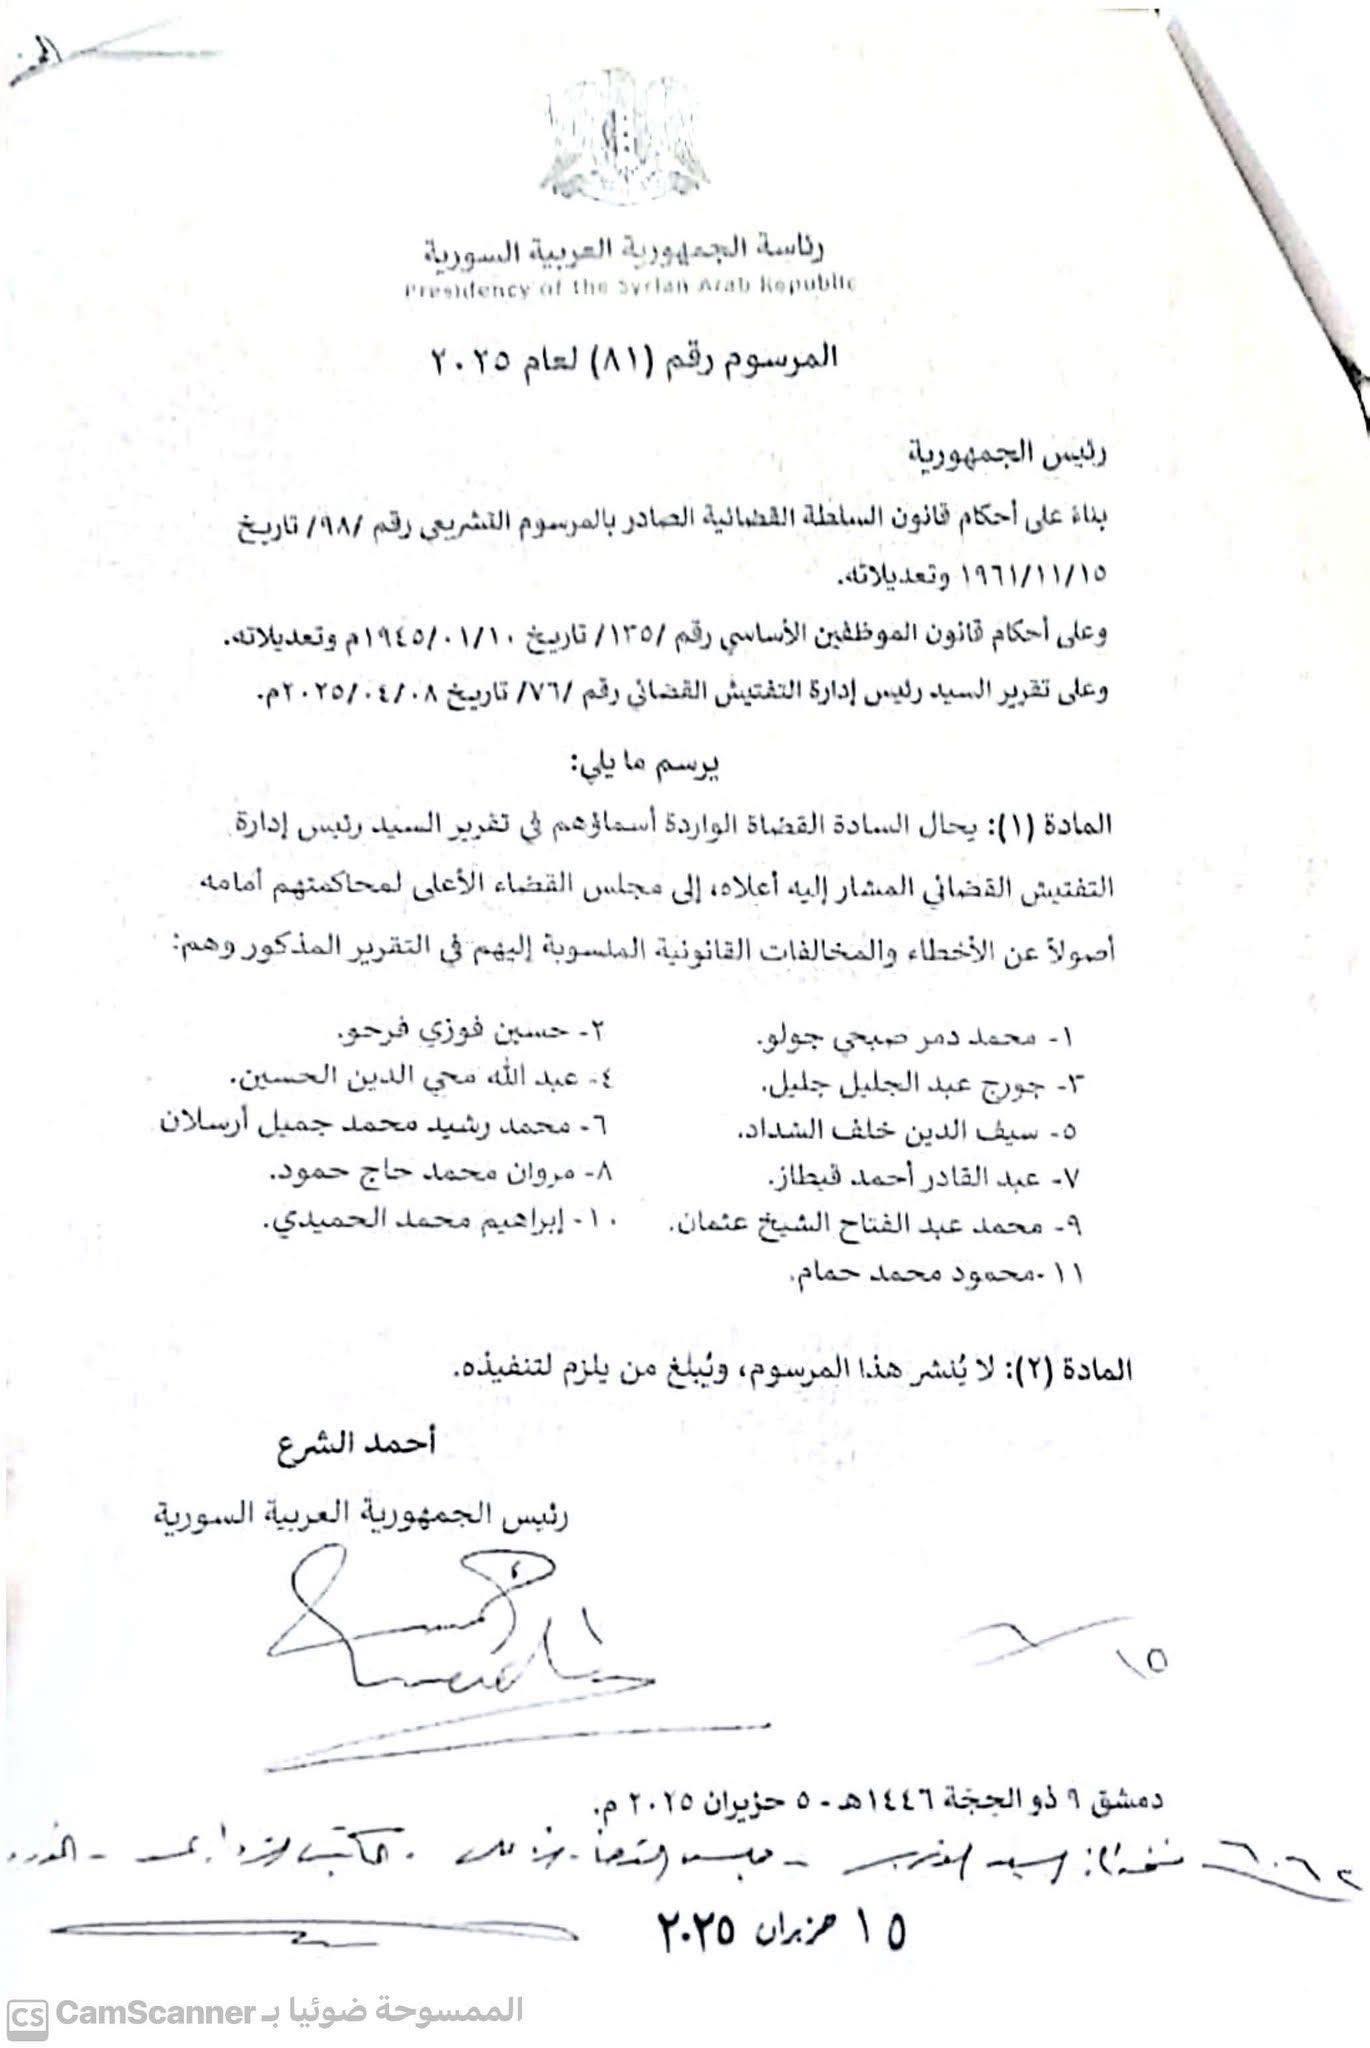 رئاسة الجمهورية العربية السورية
Presidency of the Syrian Arab Republic
المرسوم رقم (٨١) لعام ٢٠٢٥
رئيس الجمهورية
بناءً على أحكام قانون السلطة القضائية الصادر بالمرسوم التشريعي رقم /٩٨/ تاريخ
١٩٦١/١١/١٥ وتعديلاته.
وعلى أحكام قانون الموظفين الأساسي رقم /١٣٥/ تاريخ ١٩٤٥/٠١/١٠م وتعديلاته.
وعلى تقرير السيد رئيس إدارة التفتيش القضائي رقم /٧٦/ تاريخ ٢٠٢٥/٠٤/٠٨م.
يرسم ما يلي:
المادة (١): يحال السادة القضاة الواردة أسماؤهم في تقرير السيد رئيس إدارة
التفتيش القضائي المشار إليه أعلاه، إلى مجلس القضاء الأعلى لمحاكمتهم أمامه
أصولاً عن الأخطاء والمخالفات القانونية المنسوبة إليهم في التقرير المذكور وهم:
١- محمد دمر صبحي جولو. ٢- حسين فوزي فرحو.
٣- جورج عبد الجليل جليل. ٤- عبد الله محي الدين الحسين.
٥- سيف الدين خلف الشداد. ٦- محمد رشيد محمد جميل أرسلان
٧- عبد القادر أحمد قبطاز. ٨- مروان محمد حاج حمود.
٩- محمد عبد الفتاح الشيخ عثمان. ١٠- إبراهيم محمد الحميدي.
١١-محمود محمد حمام.
المادة (٢): لا يُنشر هذا المرسوم، ويُبلغ من يلزم لتنفيذه.
أحمد الشرع
رئيس الجمهورية العربية السورية
١٥
دمشق ٩ ذو الحجّة ١٤٤٦هـ - ٥ حزيران ٢٠٢٥ م.
١٥ حزيران ٢٠٢٥
الممسوحة ضوئيا بـ CamScanner
CS